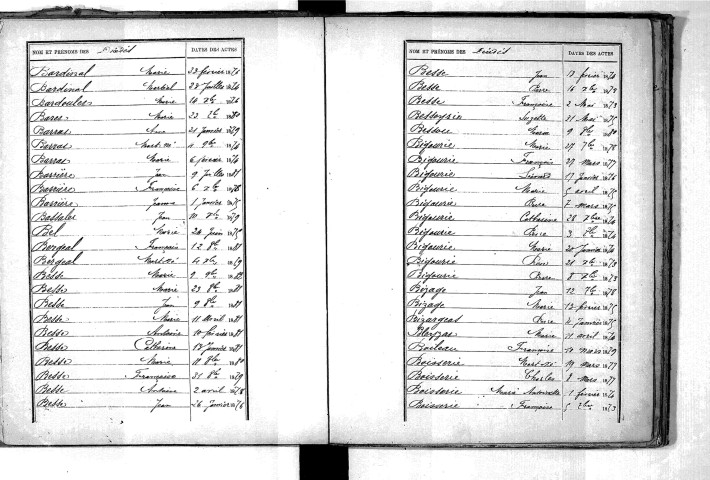 NOM ET PRÉNOMS DES Décédés DATES DES ACTES
Bardinal Marie 23 février 1876
Bardinal Martial 28 Juillet 1874
Bardoules Marie 14 Xbre 1874
Bares Marie 22 Xbre 1880
Barras Anne 21 Janvier 1879
Barras Mort-né 4 9bre 1876
Barras Marie 6 février 1874
Barrière Jean 9 Juillet 1881
Barrière Françoise 6 Xbre 1878
Barrière Jeanne 1 Janvier 1875
Bassaler Jean 10 Xbre 1879
Bel Marie 24 Juin 1875
Bergeal François 12 8bre 1881
Bergeal Mort-né 4 Xbre 1879
Besse Marie 9 9bre 1882
Besse Marie 23 8bre 1881
Besse Jean 9 8bre 1881
Besse Marie 11 Avril 1881
Besse Antoine 10 février 1881
Besse Catherine 13 Janvier 1881
Besse Marie 11 8bre 1880
Besse Françoise 31 8bre 1879
Besse Antoine 2 avril 1878
Besse Jean 26 Janvier 1876
NOM ET PRÉNOMS DES Décédés DATES DES ACTES
Besse Jean 17 février 1874
Besse Pierre 16 Xbre 1873
Besse Françoise 2 Mai 1873
Bessoyrie Suzette 21 Mai 1875
Bessou 9 8bre 1880
Bigourie Marie 27 7bre 1878
Bigourie François 27 Mars 1877
Bigourie Léonard 17 Janvier 1876
Bigourie Marie 5 avril 1875
Bigourie Pierre 7 mars 1875
Bigourie Catherine 28 Xbre 1874
Bigourie Pierre 3 7bre 1874
Bigourie Marie 20 Janvier 1874
Bigourie Pierre 21 Xbre 1873
Bigourie Pierre 8 Xbre 1873
Bizage Jean 12 7bre 1878
Bizage Marie 13 février 1875
Bizargeas Pierre 4 Janvier 1875
Marie 11 avril 1876
Boileau François 10 mars 1879
Boisserie Mort-né 19 mars 1877
Boisserie Charles 8 Mars 1877
Boisserie Marie Antoinette 1 février 1876
Boisserie Françoise 5 Xbre 1873